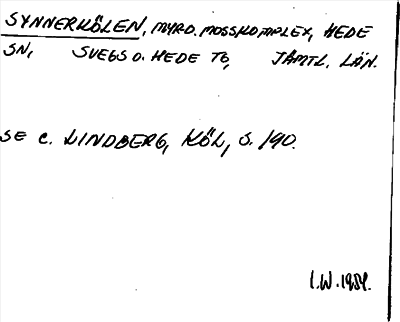 SYNNERKÖLEN, MYRO. MOSSKOMPLEX, HEDE
SN, SVEGS O. HEDE TG, JÄMTL. LÄN.
SE C. LINDBERG, KÖL, S. 190.
I.W. 1984.